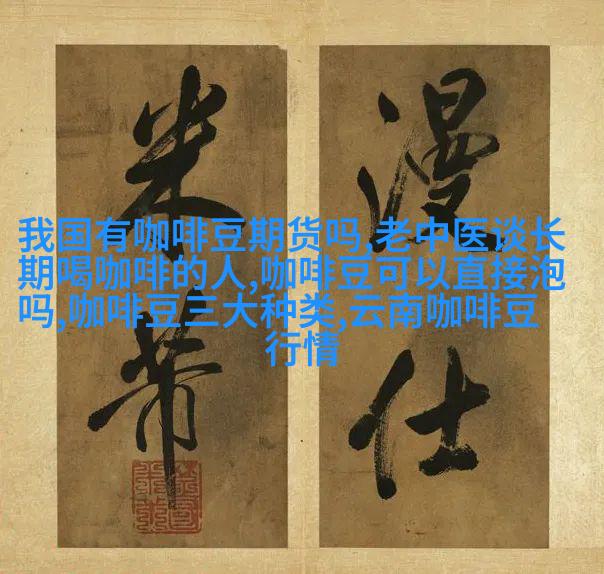 我国有咖啡豆期货吗,老中医谈长
期喝咖啡的人,咖啡豆可以直接泡
吗,咖啡豆三大种类,云南咖啡豆
行情
漫仕
米芾